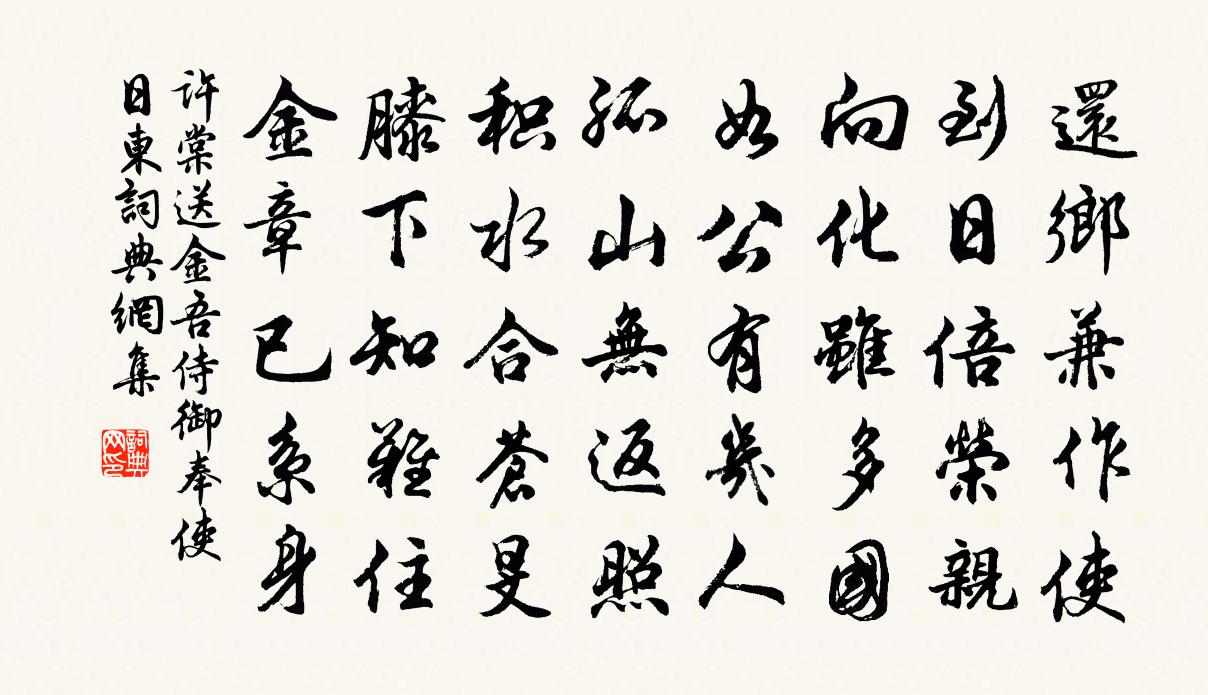 還鄉兼作使
到日倍榮親
向化雖多國
如公有幾人
孤山無返照
积水合蒼旻
膝下知難住
金章已系身
許棠送金吾侍御奉使
日東詞典網集
詞典网印